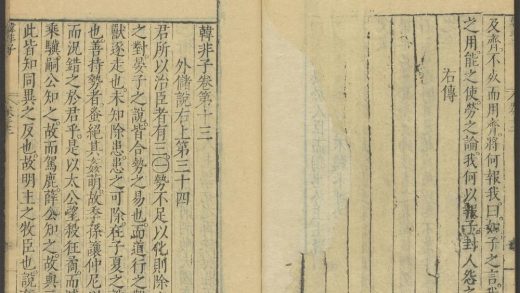 及齊不死而用齊將何報我曰如子之言我
之用能之使勞之論我何以報子封人怨之
右傳
韓非子卷第十三
外儲說右上第三十四
君所以治臣者有三○勢不足以化則除
之對晏子之說皆合勢之易也而道行之
獸逐走也未知除患患之可除在子夏之
也善持勢者蚤絕其姦萌故季孫讓仲尼
而況錯之於君乎是以太公望殺狂矞而
乘驥嗣公知之故而駕鹿薛公知之故與
此皆知同異之反也故明主之牧臣也說